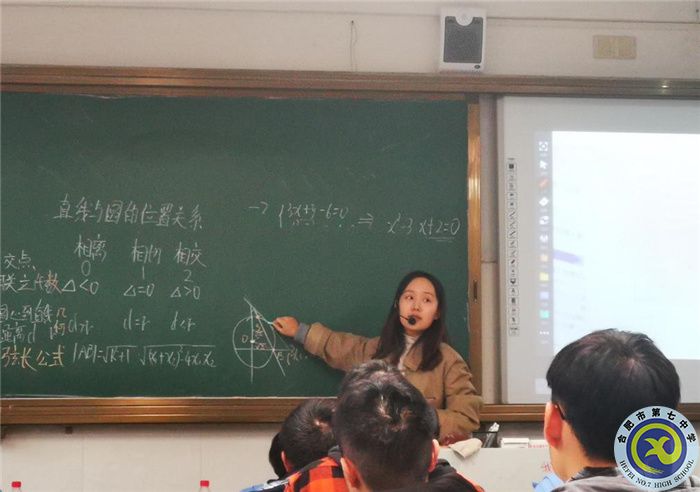 直线与圆的位置关系
相离 相切 相交
交点 0 1 2
联立 代数 Δ<0 Δ=0 Δ>0
圆心到直线距离d 几何 d>r d=r d<r
弦长公式 |AB|=√k²+1 √(x₁+x₂)²-4x₁x₂
→ {3x+y-6=0 ⇒ x²-3x+2=0
合肥市第七中学
HEFEI NO.7 HIGH SCHOOL